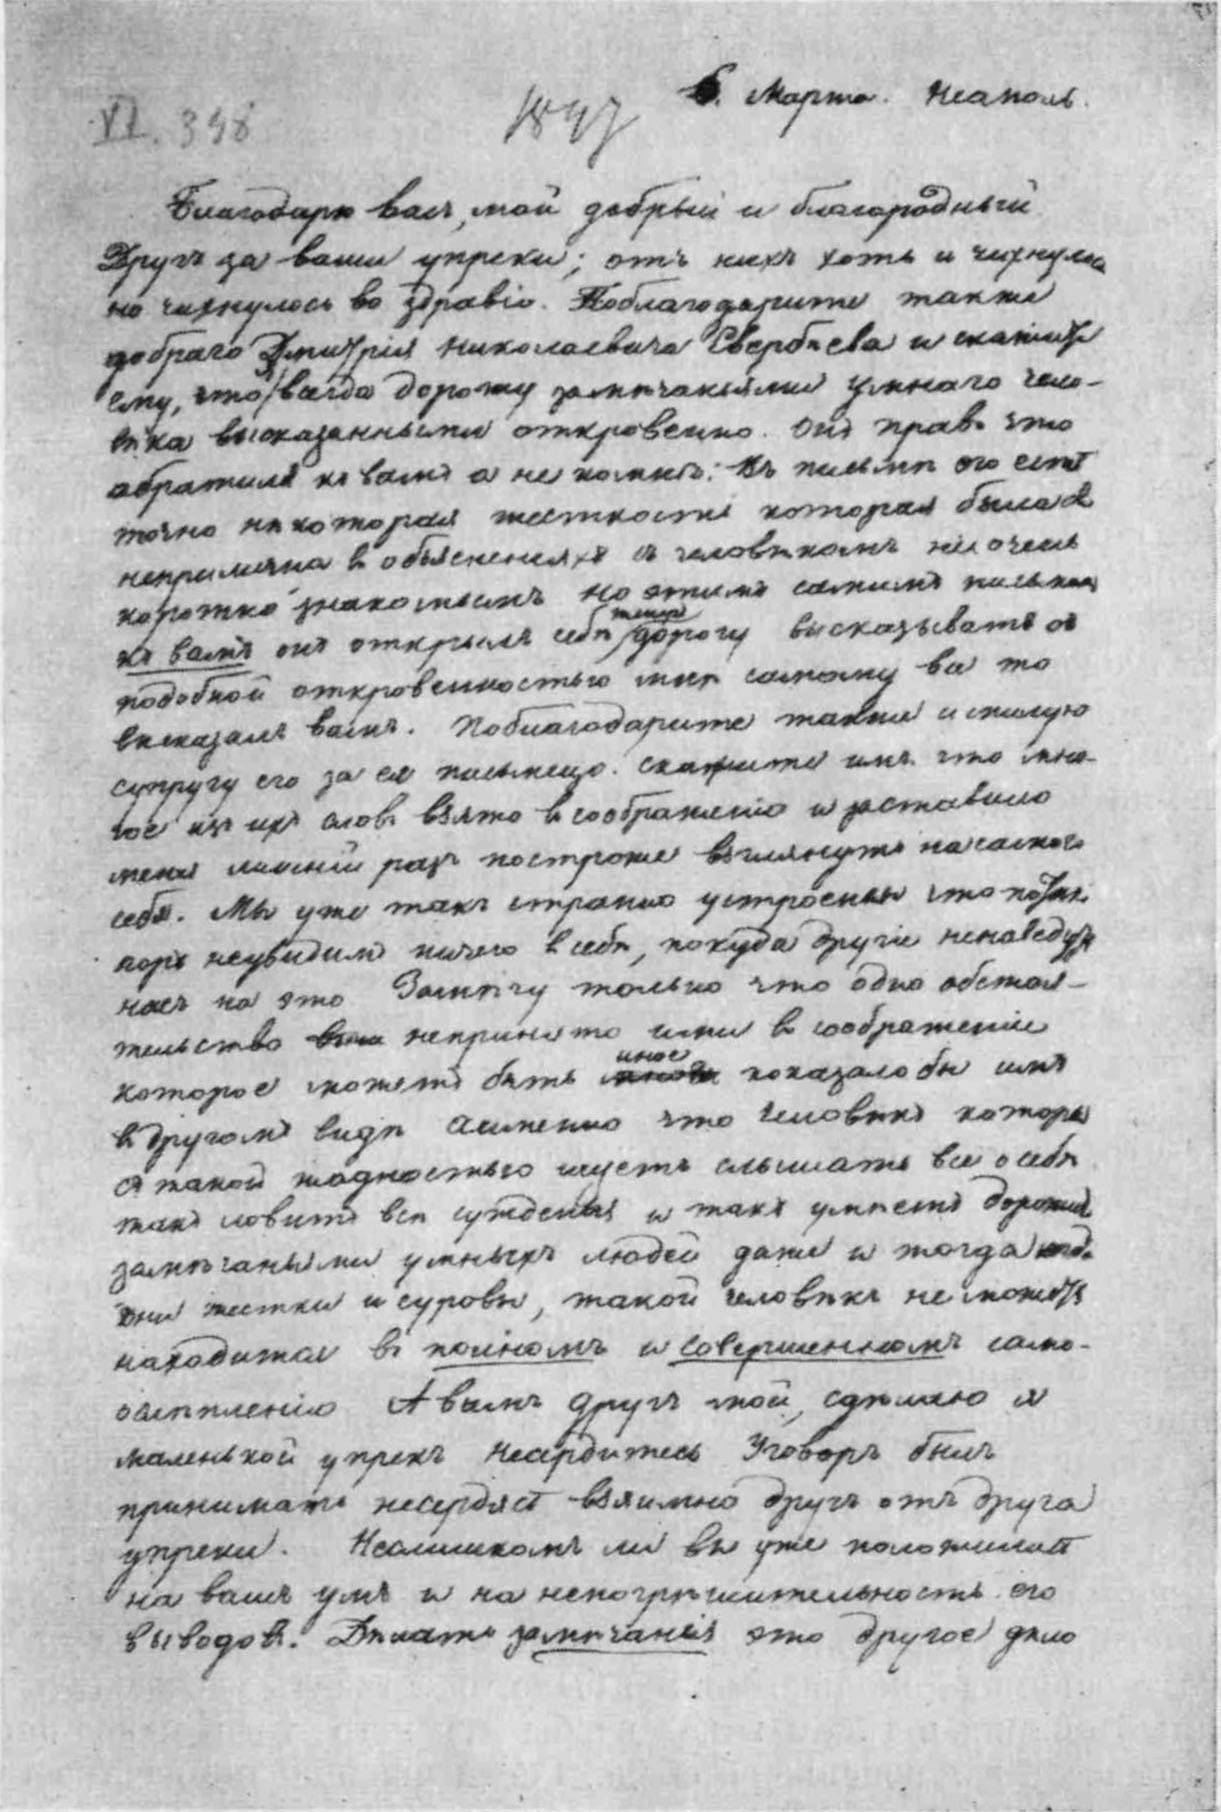 VI. 348
1847
6. Марта. Неаполь.
Благодарю васъ, мой добрый и благородный
Другъ за ваши упреки; отъ нихъ хоть и чихнулось
но чихнулось во здравіе. Поблагодарите также
добраго Дмитрія Николаевича Свербѣева и скажите
ему, что я всегда дорожу замѣчаньями умнаго чело-
вѣка высказанными откровенно. Онъ правъ что
обратился къ вамъ а не ко мнѣ: Въ письмѣ его есть
точно нѣкоторая жесткость которая была бы
неприлична в объясненіяхъ съ человѣкомъ не очень
коротко знакомымъ но этимъ самимъ письмомъ
къ вамъ онъ открылъ себѣ теперь дорогу высказывать съ
подобной откровенностью мнѣ самому все то
высказалъ вамъ. Поблагодарите также и милую
супругу его за ея письмецо. скажите имъ что мно-
гое из ихъ словъ взято в соображеніе и заставило
меня лишній разъ построже взглянуть на самого
себя. Мы уже такъ странно устроены что по тѣхъ
поръ неувидимъ ничего в себѣ, покуда другіе ненаведутъ
насъ на это Замѣчу только что одно обстоя-
тельство непринято ими в соображеніе
которое можетъ быть иное показало бы имъ
в другомъ видѣ аименно что человѣкъ который
с такой жадностью ищетъ слышать все о себѣ
такъ ловитъ всѣ сужденья и такъ умѣетъ дорожить
замѣчаньями умныхъ людей даже и тогда когда
они жестки и суровы, такой человѣкъ не можетъ
находиться въ полномъ и совершенномъ само-
ослѣпленіи А вамъ другъ мой, сдѣлаю я
маленькой упрекъ Несердитесь Уговоръ былъ
принимать несердясь взаимно другъ отъ друга
упреки. Неслишкомъ ли вы уже положились
на вашъ умъ и на непогрѣшительность его
выводовъ. Дѣлать замѣчанія это другое дѣло